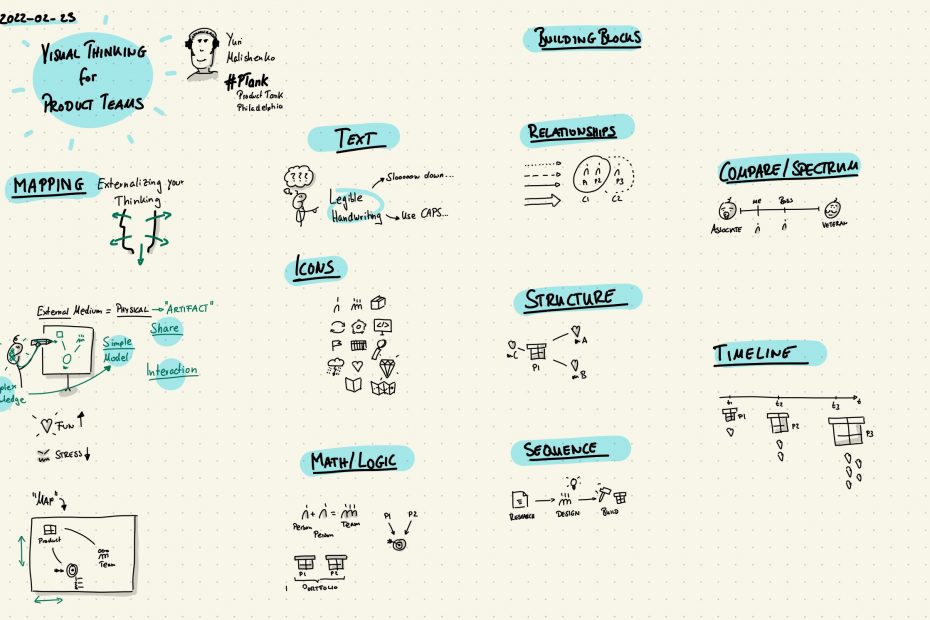 2022-02-23
VISUAL THINKING
for
PRODUCT TEAMS
Yuri
Malishenko
#PTank
Product Tank
Philadelphia
MAPPING
Externalizing your
Thinking
External Medium = PHYSICAL → "ARTIFACT"
Share
Simple
Model
Interaction
FUN
STRESS
"MAP"
Product
Team
TEXT
???
Sloooow down...
Legible
Handwriting
Use CAPS...
ICONS
</>
MATH/LOGIC
+ =
Person
Person
Team
P1 P2
P1 P2
PORTFOLIO
BUILDING BLOCKS
RELATIONSHIPS
P1 P2 P3
C1 C2
STRUCTURE
C
P1
A
B
SEQUENCE
RESEARCH
DESIGN
BUILD
COMPARE/SPECTRUM
ME BOSS
ASSOCIATE
VETERAN
TIMELINE
t1 t2 t3 t
P1
P2
P3